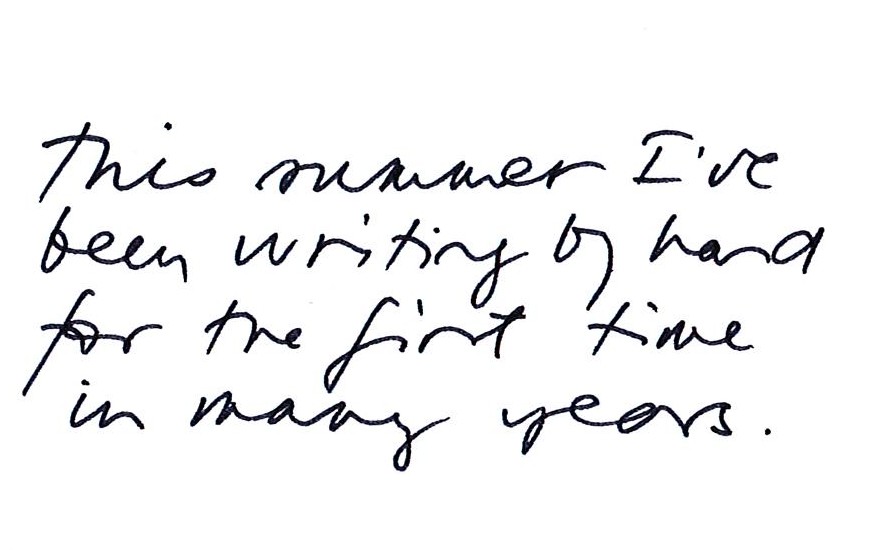 This summer I've
been writing by hand
for the first time
in many years.